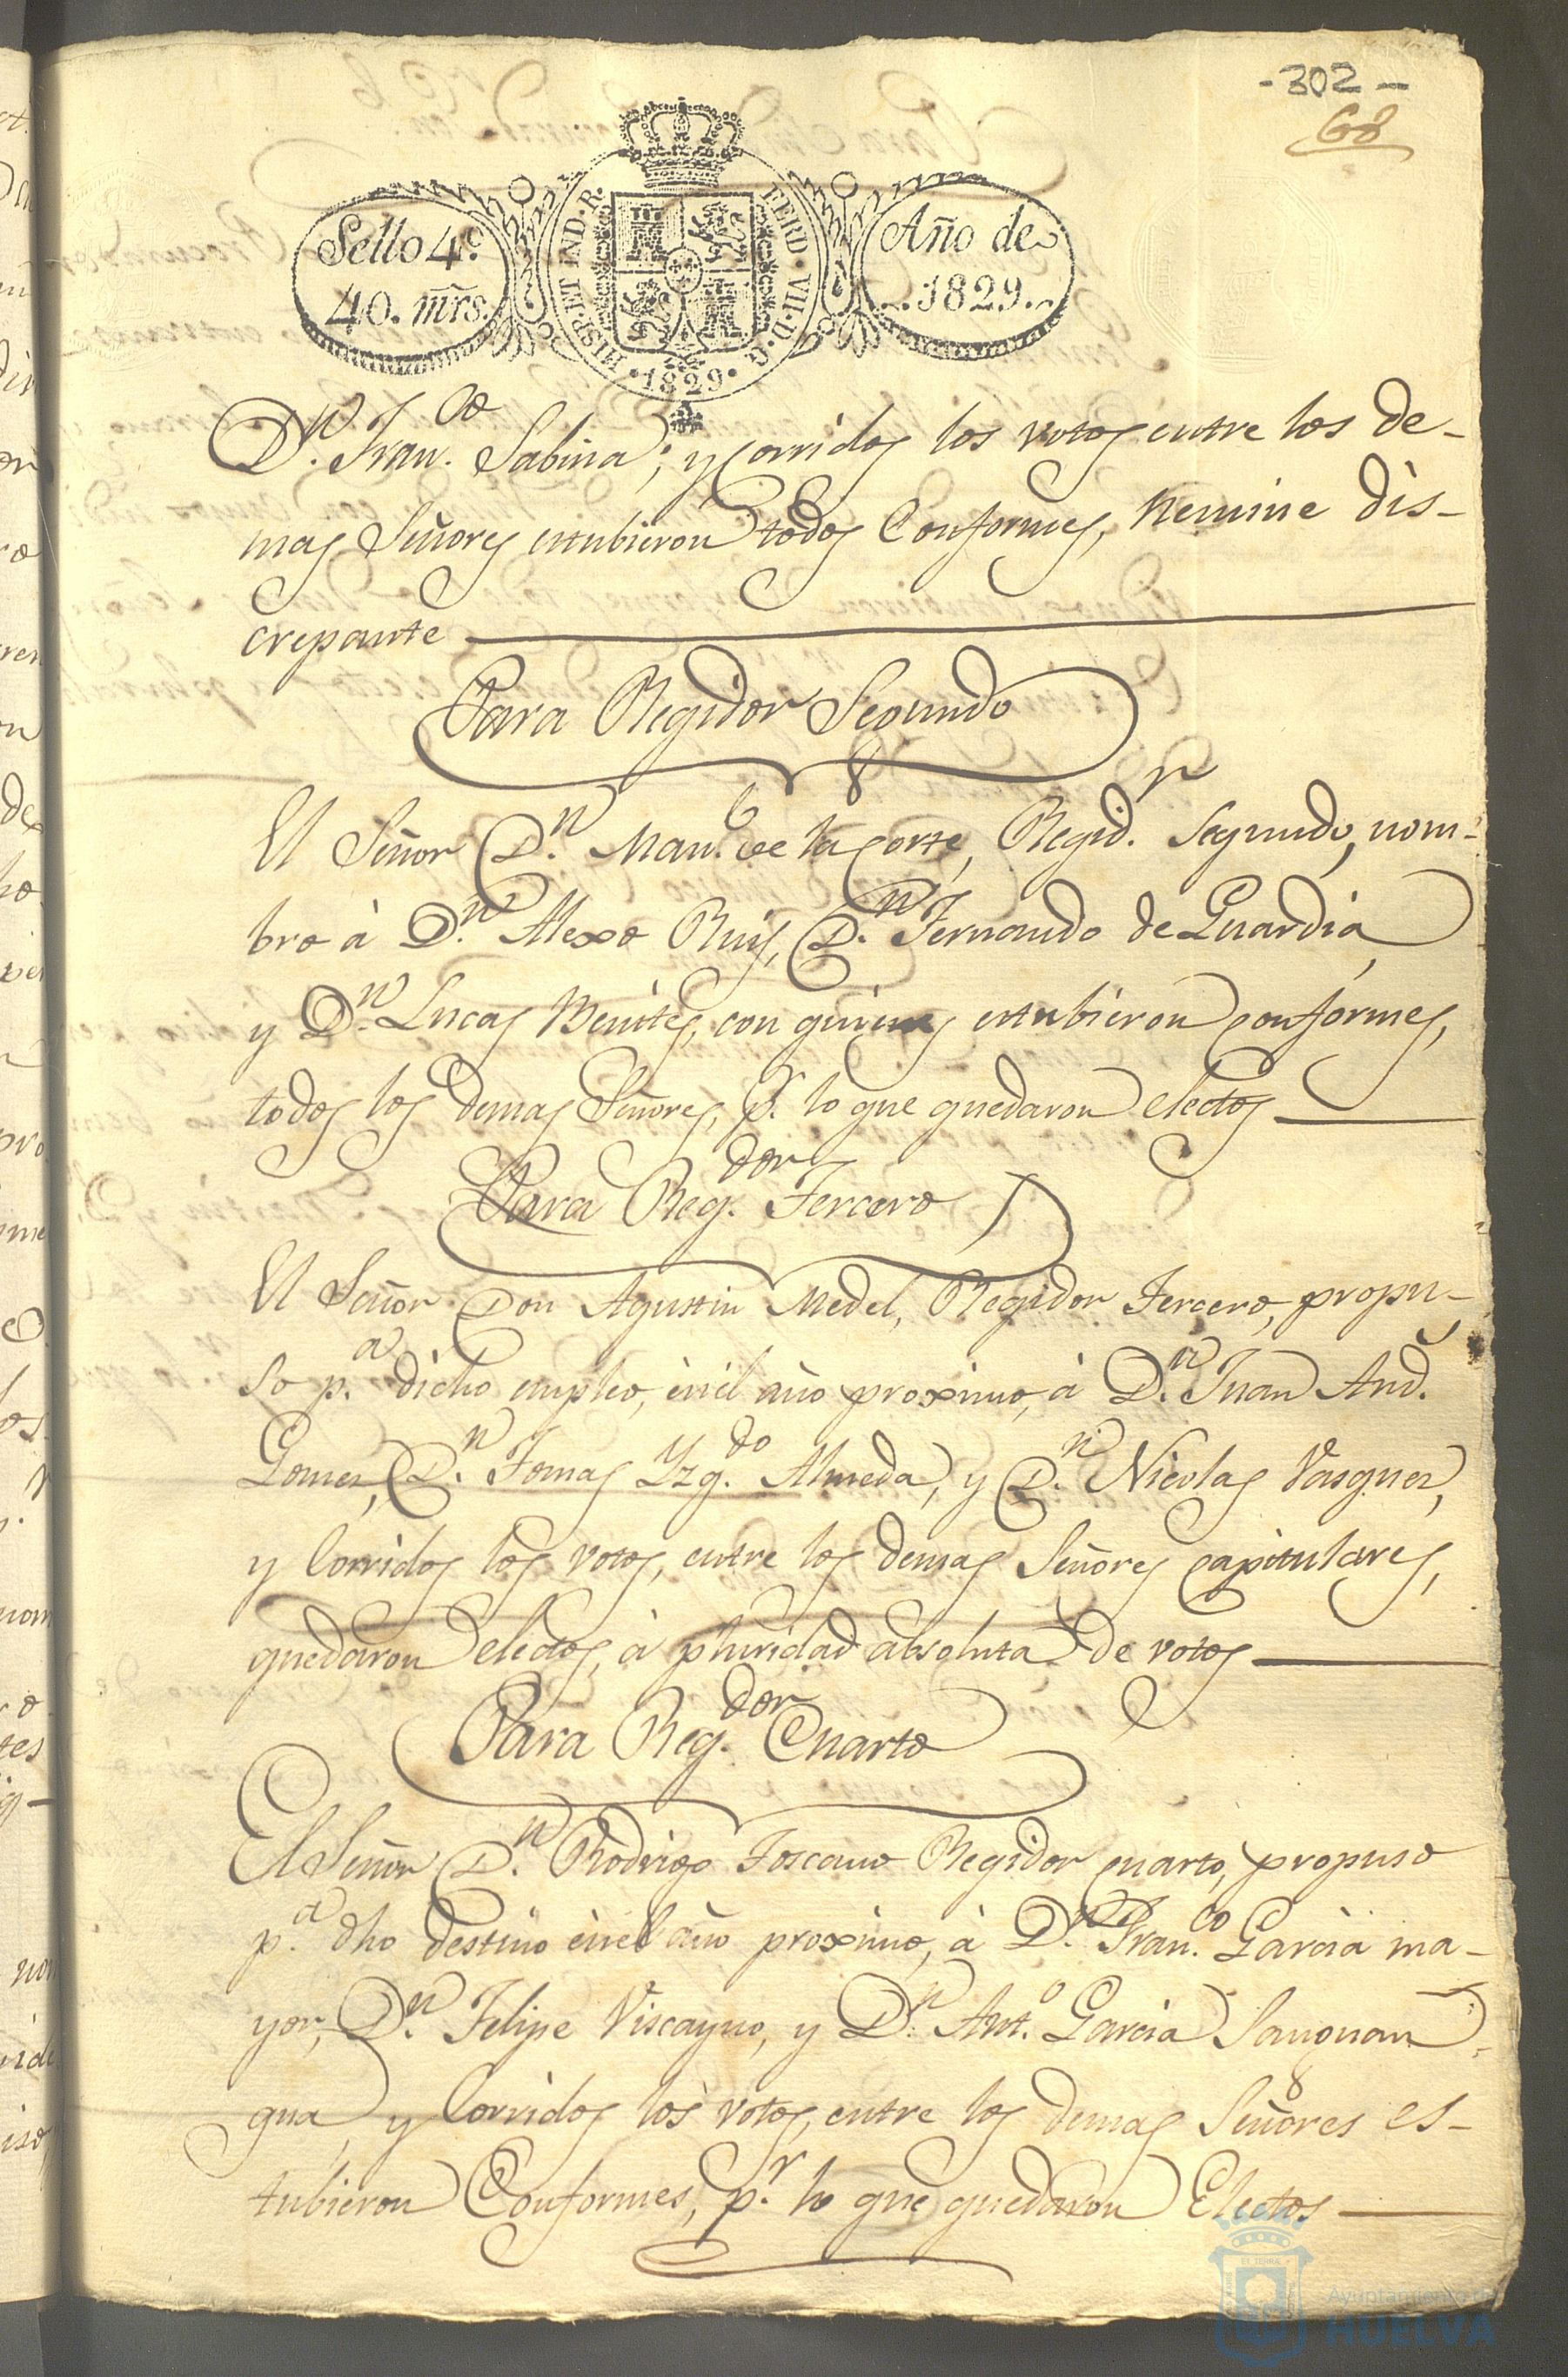 -302-
68
Sello 4º
40. mrs.
HISP. ET IND. R.
FERD. VII. D. G.
1829
Año de
1829.
D.n Fran.co Sabina; y corridos los votos entre los de-
mas Señores estubieron todos Conformes, Nemine dis-
crepante
Para Regidor Segundo
El Señor D.n Man.l de la Corte, Regid.r Segundo, nom-
bro à D.n Alexo Ruiz, D.n Fernando de Guardia
y D.n Lucas Benites, con quienes estubieron conformes,
todos los demas Señores, p.r lo que quedaron electos
Para Reg.dor Tercero
El Señor Don Agustin Medel, Regidor Tercero, propu-
so p.a dicho empleo, ènel año proximo, à D.n Juan And.s
Gomez, D.n Tomas Yzq.do Almeda, y D.n Nicolas Vasquez,
y Corridos los votos, entre los demas Señores capitulares,
quedaron electos, à pluridad absoluta de votos
Para Reg.dor Cuarto
El Señor D.n Rodrigo Toscano Regidor cuarto, propuso
p.a dho destino ènel año proximo, à D.n Fran.co Garcia ma-
yor, D.n Felipe Viscayno, y D.n Ant.o Garcia
y Corridos los votos, entre los demas Señores es-
tubieron Conformes, p.r lo que quedaron Electos
Ayuntamiento de
HUELVA